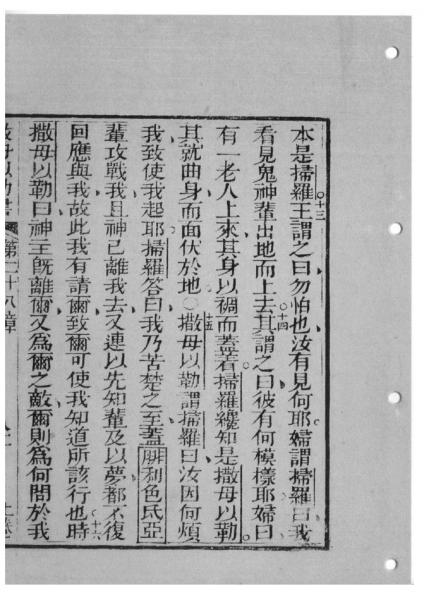 本是掃羅王謂之曰勿怕也汝有見何耶婦謂掃羅曰我
十三
看見鬼神輩出地而上去其謂之曰彼有何模樣耶婦曰
十四
有一老人上來其身以裯而蓋着掃羅纔知是撒母以勒
其就曲身而面伏於地○撒母以勒謂掃羅曰汝因何煩
十五
我致使我起耶掃羅答曰我乃苦楚之至蓋腓利色氏亞
輩攻戰我且神已離我去又連以先知輩及以夢都不復
回應與我故此我有請爾致爾可使我知道所該行也時
十六
撒母以勒曰神主旣離爾又為爾之敵爾則為何問於我
撒母以勒書 第二十八章